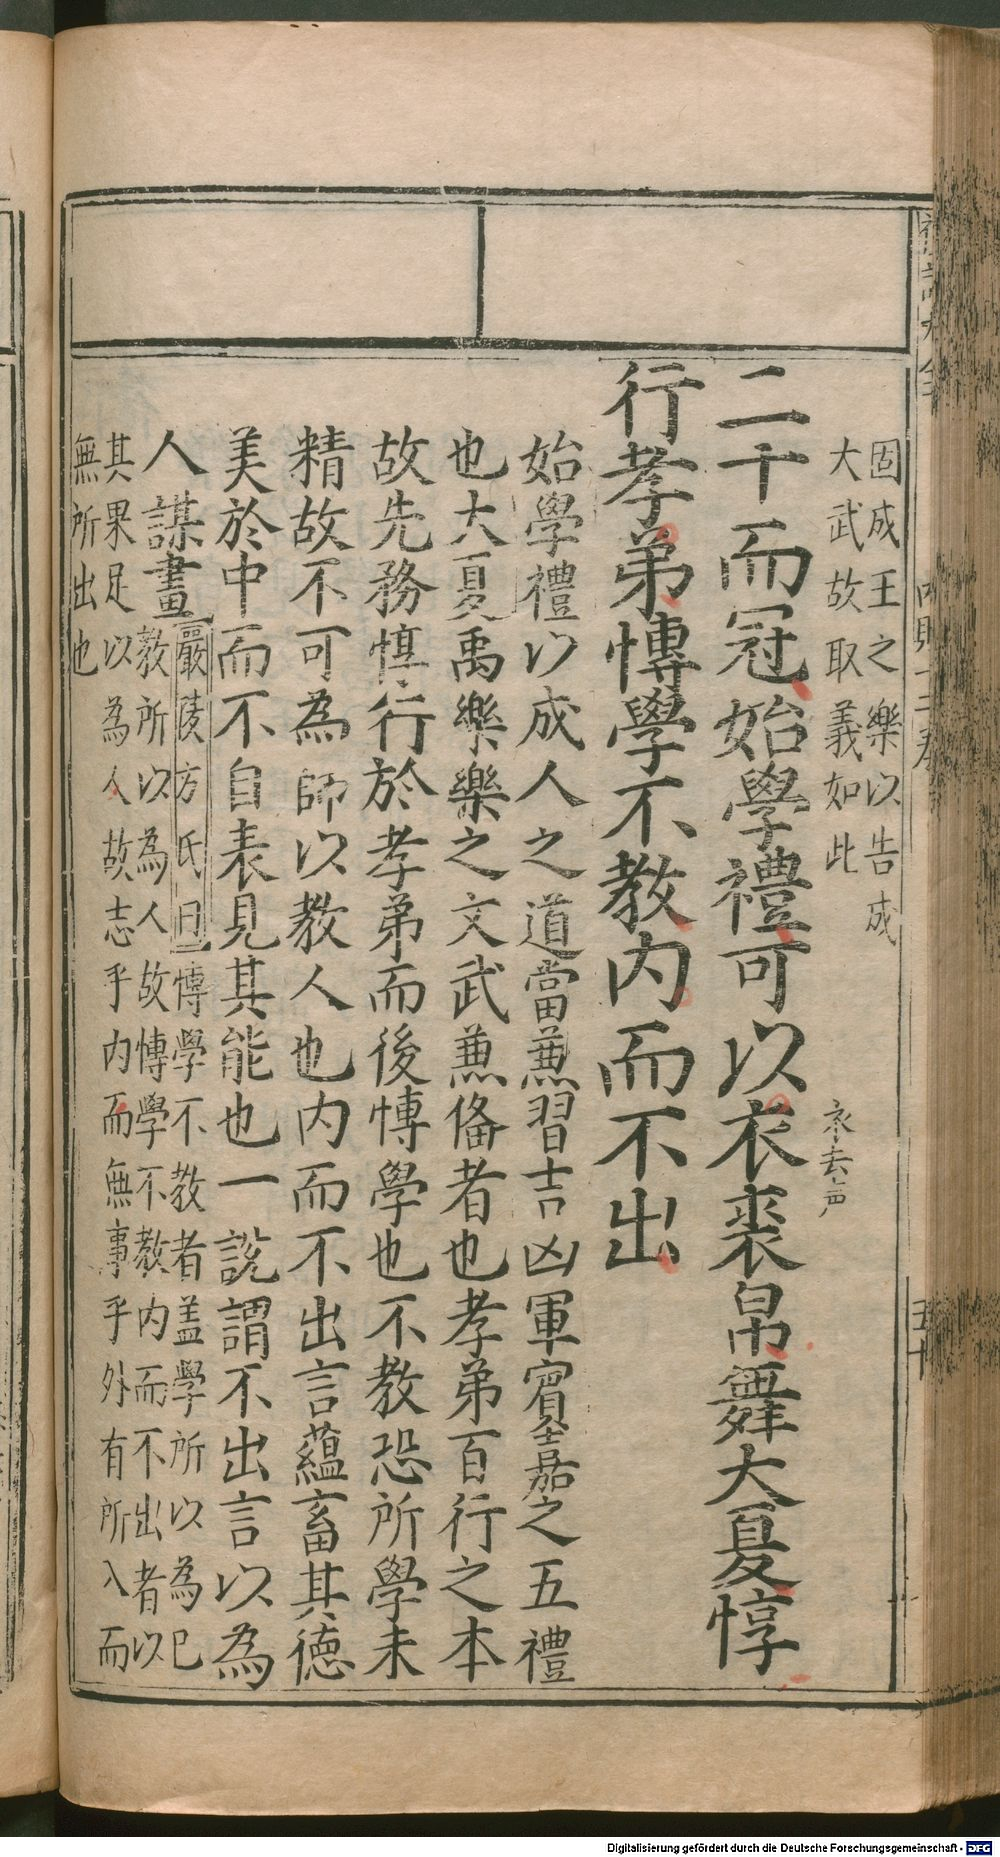 固成王之樂以告成
大武故取義如此
二十而冠始學禮可以衣裘帛舞大夏惇
衣去声
行孝弟博學不教内而不出
始學禮以成人之道當蒹習吉凶軍賓嘉之五禮
也大夏禹樂樂之文武蒹俻者也孝弟百行之本
故先務惇行於孝弟而後博學也不教恐所學未
精故不可為師以教人也内而不出言蘊畜其德
美於中而不自表見其能也一說謂不出言以為
人謀畫
嚴陵方氏曰博學不教者盖學所以為已
教所以為人故博學不教内而不出者以
其果足以為人故志乎内而無事乎外有所入而
無所出也
五十
Digitalisierung gefördert durch die Deutsche Forschungsgemeinschaft - DFG